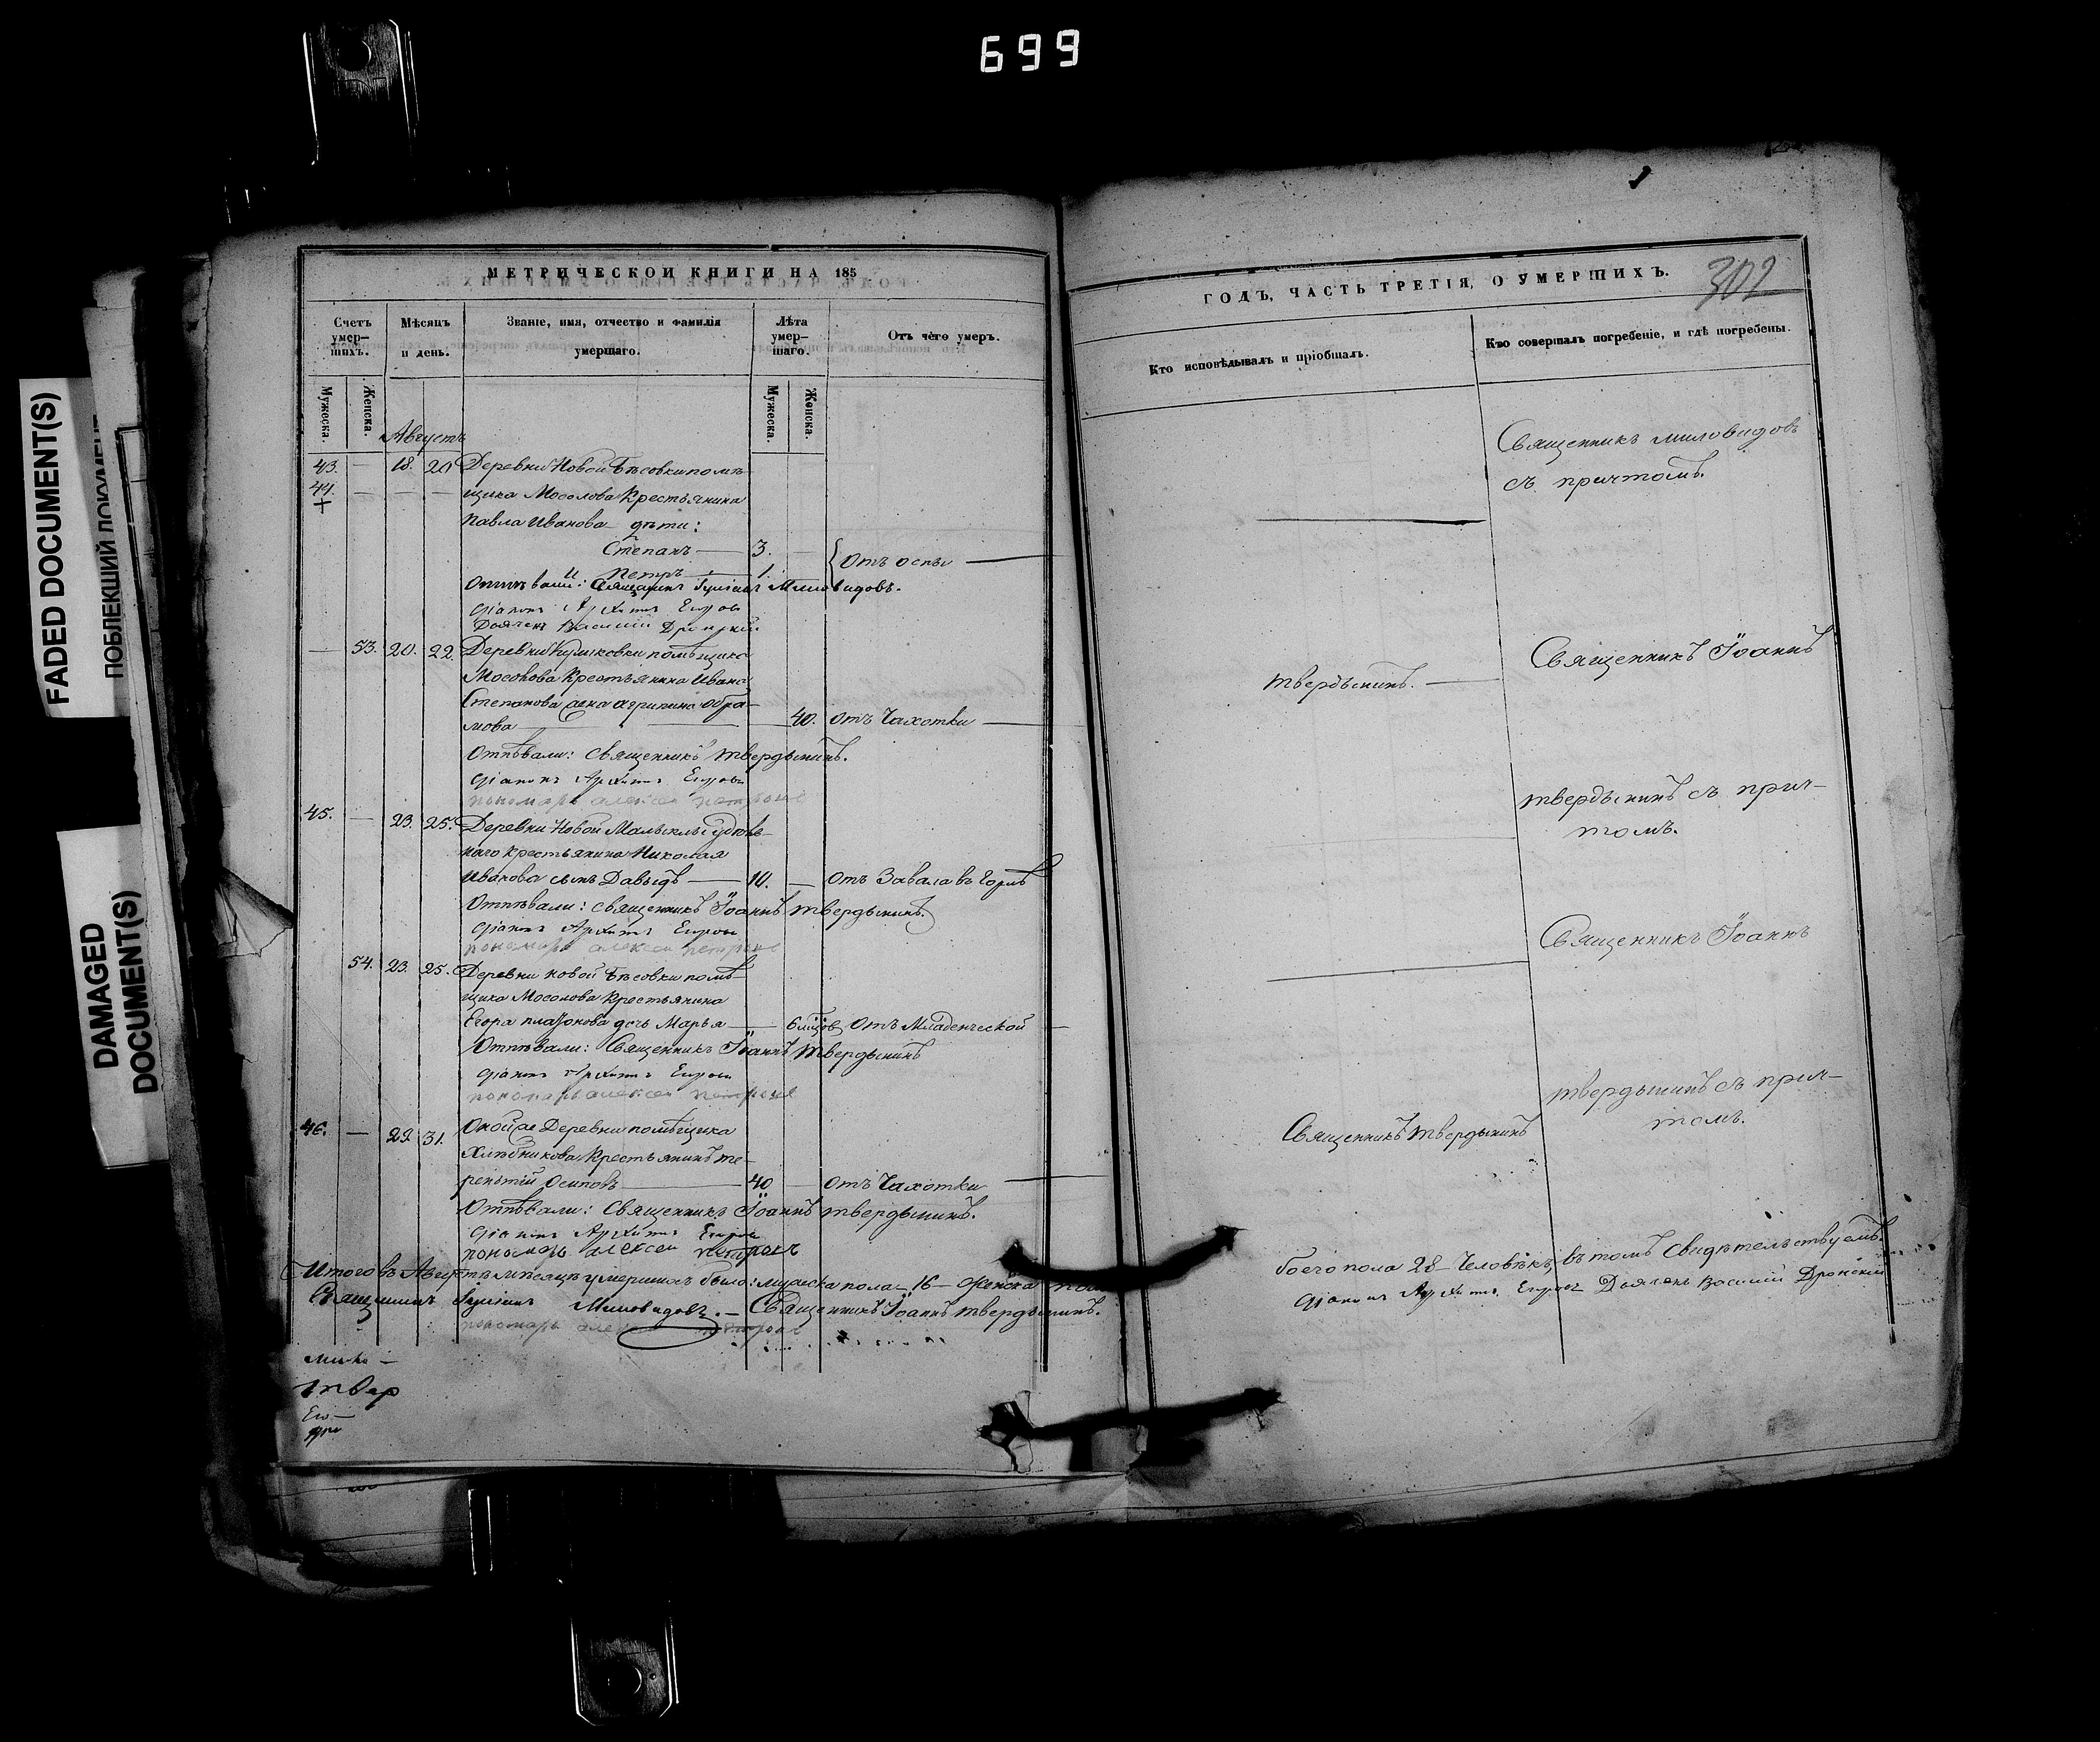 699
FADED DOCUMENT(S)
ПОБЛЕКШИЙ ДОКУМЕНТ
DAMAGED
DOCUMENT(S)
МЕТРИЧЕСКОЙ КНИГИ НА 185
Счетъ умер-шихъ.
Мѣсяцъ и день.
Званіе, имя, отчество и фамилія умершаго.
Лѣта умер-шаго.
Отъ чего умеръ.
Мужеска.
Женска.
Мужеска.
Женска.
Августъ
43. — 18. 20 Деревни Новой Бѣсовки помѣ-
44. — — — щика Мосолова Крестьянина
Павла Иванова дѣти:
Степанъ — 3. —
и Петръ — 1. Отъ оспы
Отпѣвали: Священникъ Миловидовъ.
Діаконъ Архипъ Егоровъ
Дьячекъ Василій Дронскій
— 53. 20. 22. Деревни Куликовки помѣщика
Мосолова Крестьянина Ивана
Степанова жена Агрипина Абра-
мова — 40. Отъ Чахотки
Отпѣвали: Священникъ Твердынинъ.
Діаконъ Архипъ Егоровъ
пономарь Алексей
45. — 23. 25. Деревни Новой Малыклы удѣль-
наго крестьянина Николая
Иванова сынъ Давыдъ — 14. — Отъ Завала въ Горлѣ
Отпѣвали: Священникъ Іоаннъ Твердынинъ.
Діаконъ Архипъ Егоровъ
пономарь Алексей
54. 23. 25. Деревни новой Бѣсовки помѣ-
щика Мосолова Крестьянина
Егора Платонова дочь Марья — 6 мѣсцов Отъ Младенческой
Отпѣвали: Священникъ Іоаннъ Твердынинъ
Діаконъ Архипъ Егоровъ
пономарь Алексей
46. — 29. 31. Оной же Деревни помѣщика
Хлѣбникова Крестьянинъ Те-
рентій Осиповъ — 40 — Отъ Чахотки
Отпѣвали: Священникъ Іоаннъ Твердынинъ.
Діаконъ Архипъ Егоровъ
пономарь Алексей
Итого въ Августѣ мѣсяцѣ умершихъ было: мужеска пола 16 — женска
Священникъ Миловидовъ. — Священникъ Іоаннъ Твердынинъ.
пономарь
Мило —
Твер
Его —
ГОДЪ, ЧАСТЬ ТРЕТІЯ, О УМЕРШИХЪ.
302
Кто исповѣдывалъ и пріобщалъ.
Кто совершалъ погребеніе, и гдѣ погребены.
Священникъ Миловидовъ
съ причтомъ.
Священникъ Іоаннъ
Твердынинъ.
Твердынинъ съ прич-
томъ.
Священникъ Іоаннъ
Твердынинъ съ прич-
томъ.
Священникъ Твердынинъ
боего пола 28 Человѣкъ, въ томъ Свидѣтельствуемъ.
Діаконъ Архипъ Егоровъ Дьячекъ Василій Дронскій